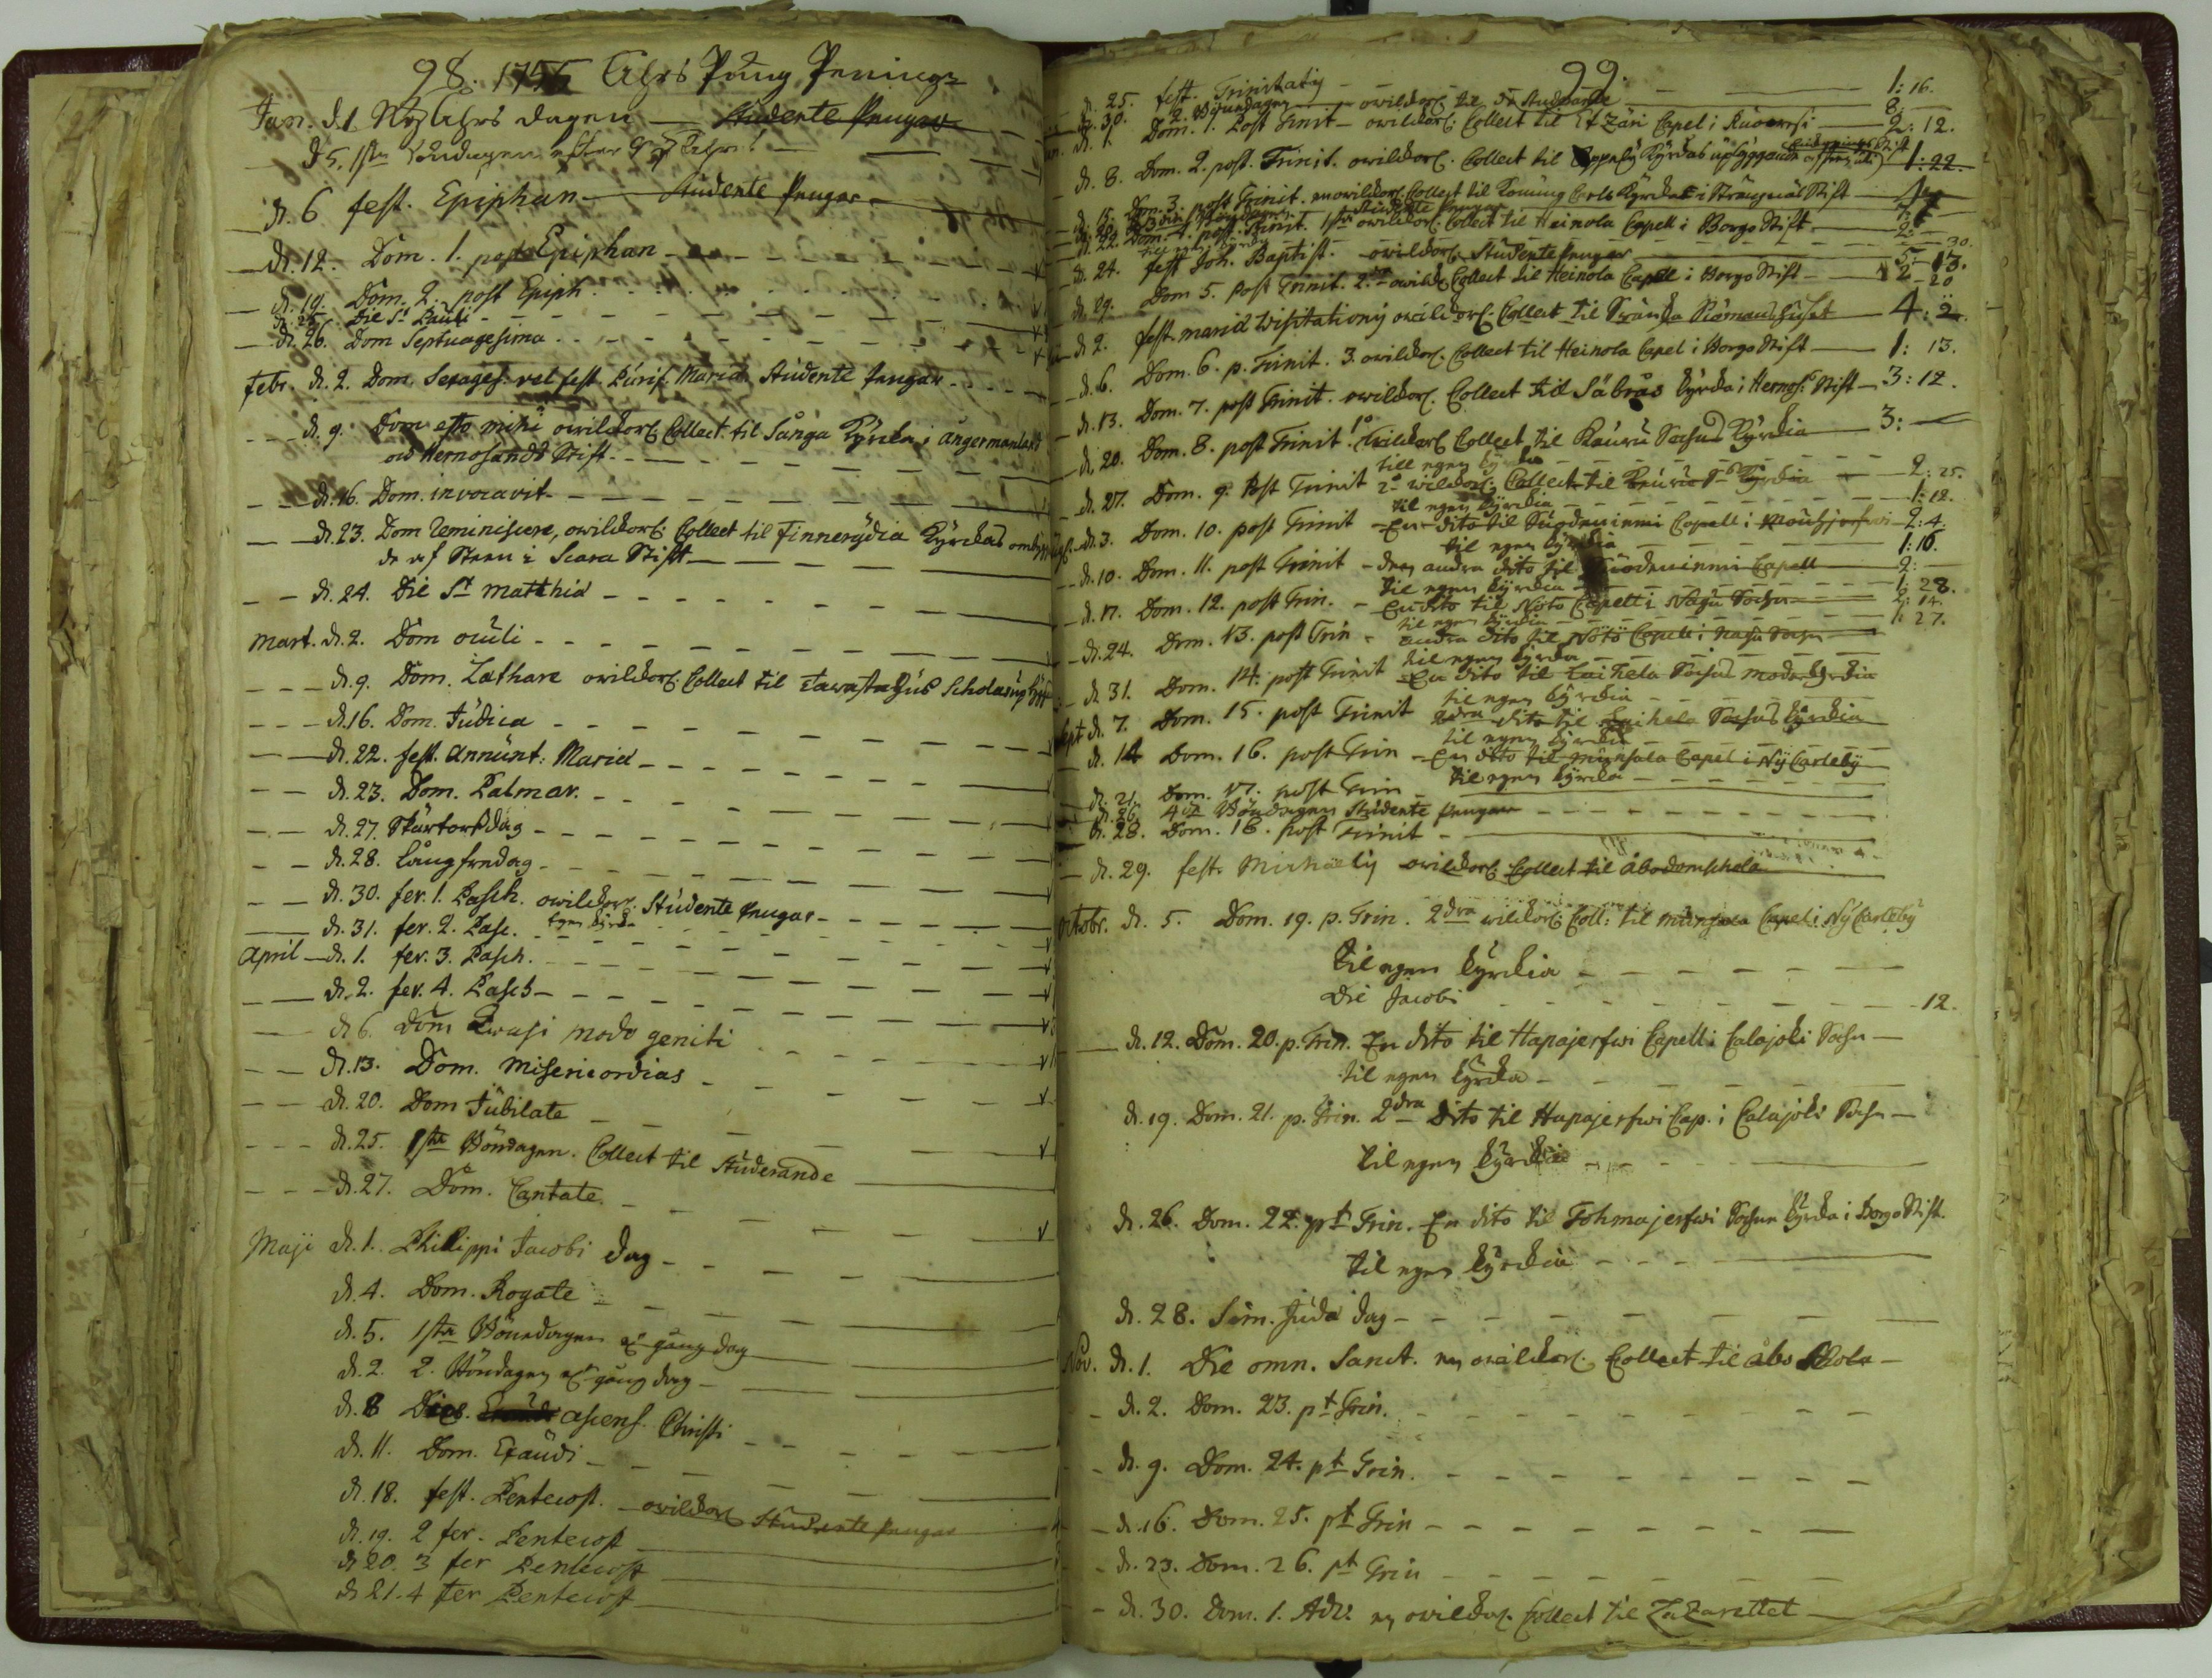 98. 1755 Åhrs Pung Penning
Jan. d. 1. Nyåhrs dagen — Studente Pengar
d. 5. 1sta Söndagen efter Nyåhrs
d. 6 fest. Epiphan — Studente Pengar
d. 12. Dom. 1. post Epiphan
d. 19. Dom. 2. post Epiph.
d. 25. Die St. Pauli
d. 26. Dom Septuagesima
Febr. d. 2. Dom. Sexages. vel fest. Purif. Mariæ Studente Pengar
d. 9. Dom esto mihi owilckorl. Collect til Sånga Kyrcka i Ångermanland
och Hernosands Stift
d. 16. Dom. invocavit
d. 23. Dom Reminiscere, owilckorl. Collect til Finnerydia Kyrckas
de af Steen i Scara Stift
d. 24. Die St matthiæ
Mart. d. 2. Dom oculi
d. 9. Dom. Læthare owilckorl: Collect til Tawastehus Schola
d. 16. Dom. Judica
d. 22. fest. Annunt. Mariæ
d. 23. Dom. Palmar.
d. 27. Skärtorsdag
d. 28. Långfredag
d. 30. fer. 1. Pasch. owilckorl. Studente Pengar
d. 31. fer. 2. Pasc. Egen kyrcka
April d. 1. fer. 3. Pasch.
d. 2. fer. 4. Pasch
d. 6. Dom Qwasi modo geniti
d. 13. Dom. Misericordias
d. 20. Dom Jubilate
d. 25. 1sta Böndagen. Collect til Studerande
d. 27. Dom. Cantate
Maji d. 1. Philippi Jacobi dag
d. 4. Dom. Rogate
d. 5. 1sta Böndagen gång dag
d. 2. 2. Böndagen gång dag
d. 8 Dies. ascens. Christi
d. 11. Dom. Exaudi
d. 18. fest. Pentecost. owilckorl Studente Pengar
d. 19. 2 fer. Pentecost
d. 20. 3 fer Pentecost
d. 21. 4 fer Pentecost
99.
d. 25. fest. Trinitatis 1: 16.
d. 30. 2. Böndagen owilckorl til Studerande 8:
d. 1. Dom. 1. Post Trinit owilckorl. Collect til Etzäri Capel i Ruowesi 2: 12.
d. 8. Dom. 2. post. Trinit. owilckorl. Collect til Kyrckas upbyggande 1: 22.
d. 15. Dom. 3. post Trinit. owilckorl. Collect til Konung Carls Kyrcka i Strängnäs Stift
d. 22. Dom. 4. post. Trinit. 1sta owilckorl. Collect til Heinola Capell i Borgo Stift 2:
d. 24. fest Joh. Baptist. owilckorl. Studente Pengar
d. 29. Dom 5. Post Trinit. 2. owilck. Collect til Heinola Capell i Borgo Stift 2 - 20
d. 2. fest. mariæ Visitationis owilckorl. Collect til Siömans huset 4: 2.
d. 6. Dom. 6. p. Trinit. 3. owilckorl. Collect til Heinola Capel i Borgo Stift 1: 13.
d. 13. Dom. 7. post Trinit. owilckorl. Collect til Säbrå kyrcka i Hernos. Stift 3: 12.
d. 20. Dom. 8. post Trinit. 1° wilckorl Collect til Rauru Sochns Kyrckia 3:
till egen kyrcka
d. 27. Dom. 9. Post Trinit 2° wilckorl. Collect til Kyrckia 2: 25.
til egen kyrckia 1: 12.
d. 3. Dom. 10. post Trinit En dito til Capell i 2: 4.
til egen kyrckia 1: 16.
d. 10. Dom. 11. post Trinit den andra dito til Capell 2:
til egen kyrckia 1: 28.
d. 17. Dom. 12. post Trin. En dito til Nötö Capell i Nagu Sochn
til egen kyrckia 1: 27.
d. 24. Dom. 13. post Trin andra dito til Nötö Capell i Nagu Sochn
til egen kyrcka
d. 31. Dom. 14. post Trinit En dito til Laihela Sochns moderkyrckia
til egen kyrckia
Sept d. 7. Dom. 15. post Trinit 2dra dito til Laihela Sochns kyrckia
til egen kyrckia
d. 14 Dom. 16. post Trin En ditto til Munsala Capel i NyCarleby
til egen kyrcka
d. 21. Dom. 17. post Trin
d. 26. 4de Böndagen Studente Pengar
d. 28. Dom. 18. post Trinit
d. 29. fest. Michaelis owilckorl. Collect til Åbo domschola
Octobr. d. 5. Dom. 19. p. Trin. 2dra wilckorl: Coll: til Munsala Capel i NyCarleby
til egen kyrckia
Die Jacobi 12.
d. 12. Dom. 20. p. Trin. En dito til Hapajerfwi Capell i Calajoki Sochn
til egen kyrcka
d. 19. Dom. 21. p. Trin. 2dra Dito til Hapajerfwi Cap. i Calajoki Sochn
til egen kyrckia
d. 26. Dom. 22. pt Trin. En dito til Tohmajerfwi Sochne kyrcka i Borgo Stift.
til egen kyrckia
d. 28. Sim. Judæ dag
Nov. d. 1. Die omn. Sanct. en owilckorl. Collect til Åbo Schola
d. 2. Dom. 23. pt Trin.
d. 9. Dom. 24. pt Trin.
d. 16. Dom. 25. pt Trin
d. 23. Dom. 26. pt Trin
d. 30. Dom. 1. Adv. en owilckorl. Collect til Lazarettet